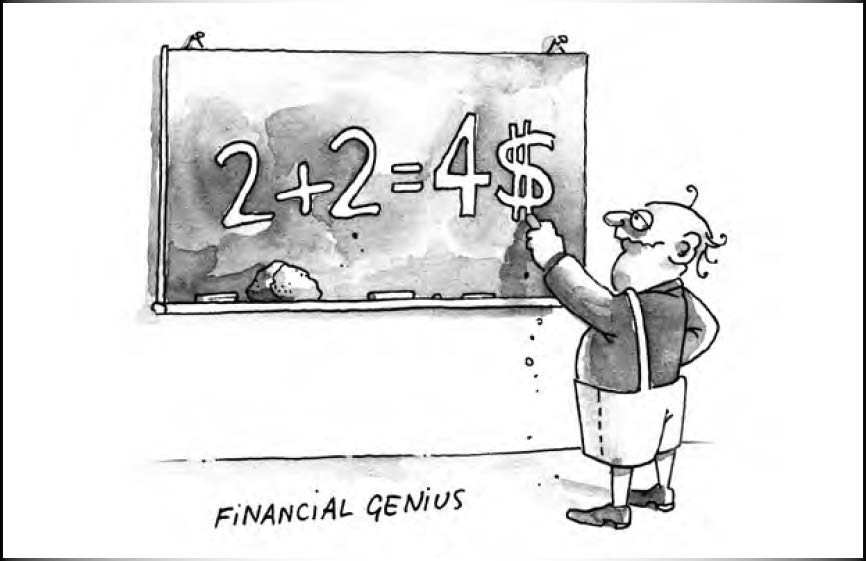 2+2=4$
FiNANCiAL GENiUS